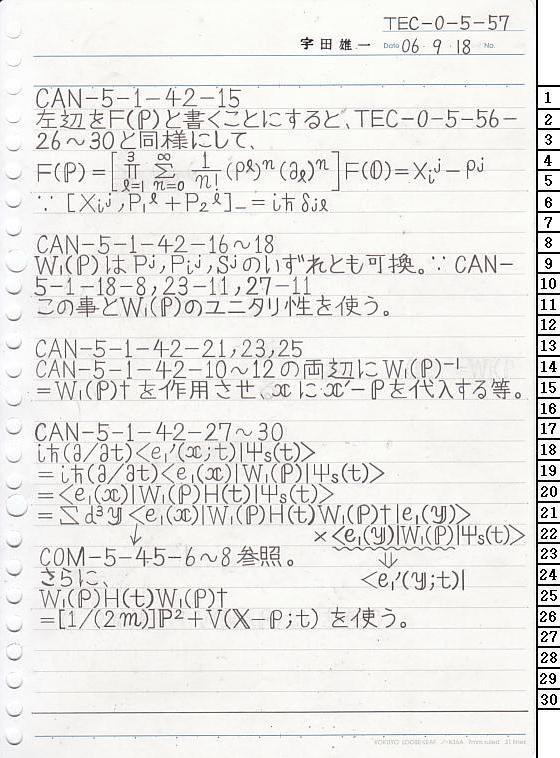 TEC-0-5-57
宇田雄一 Date 06・9・18 No.
CAN-5-1-42-15
左辺をF(ρ)と書くことにすると、TEC-0-5-56-
26〜30と同様にして、
F(ρ)=[∏_{ℓ=1}^{3} ∑_{n=0}^{∞} 1/n! (ρˡ)ⁿ(∂ₗ)ⁿ]F(𝟘)=X₁ʲ-ρʲ
∵ [X₁ʲ,P₁ˡ+P₂ˡ]₋=iħδjℓ
CAN-5-1-42-16〜18
W₁(ρ)はPʲ,P₁ʲ,Sʲのいずれとも可換。∵ CAN-
5-1-18-8,23-11,27-11
この事とW₁(ρ)のユニタリ性を使う。
CAN-5-1-42-21,23,25
CAN-5-1-42-10〜12の両辺にW₁(ρ)⁻¹
=W₁(ρ)†を作用させ、xにx'-ρを代入する等。
CAN-5-1-42-27〜30
iħ(∂/∂t)<e₁'(x;t)|Ψs(t)>
=iħ(∂/∂t)<e₁(x)|W₁(ρ)|Ψs(t)>
=<e₁(x)|W₁(ρ)H(t)|Ψs(t)>
=∑d³y<e₁(x)|W₁(ρ)H(t)W₁(ρ)†|e₁(y)>
×<e₁(y)|W₁(ρ)|Ψs(t)>
COM-5-45-6〜8参照。
さらに、
<e₁'(y;t)|
W₁(ρ)H(t)W₁(ρ)†
=[1/(2m)]ℙ²+V(𝕏-ρ;t) を使う。
KOKUYO LOOSE-LEAF ノ-836A 7mm ruled 31 lines
1
2
3
4
5
6
7
8
9
10
11
12
13
14
15
16
17
18
19
20
21
22
23
24
25
26
27
28
29
30